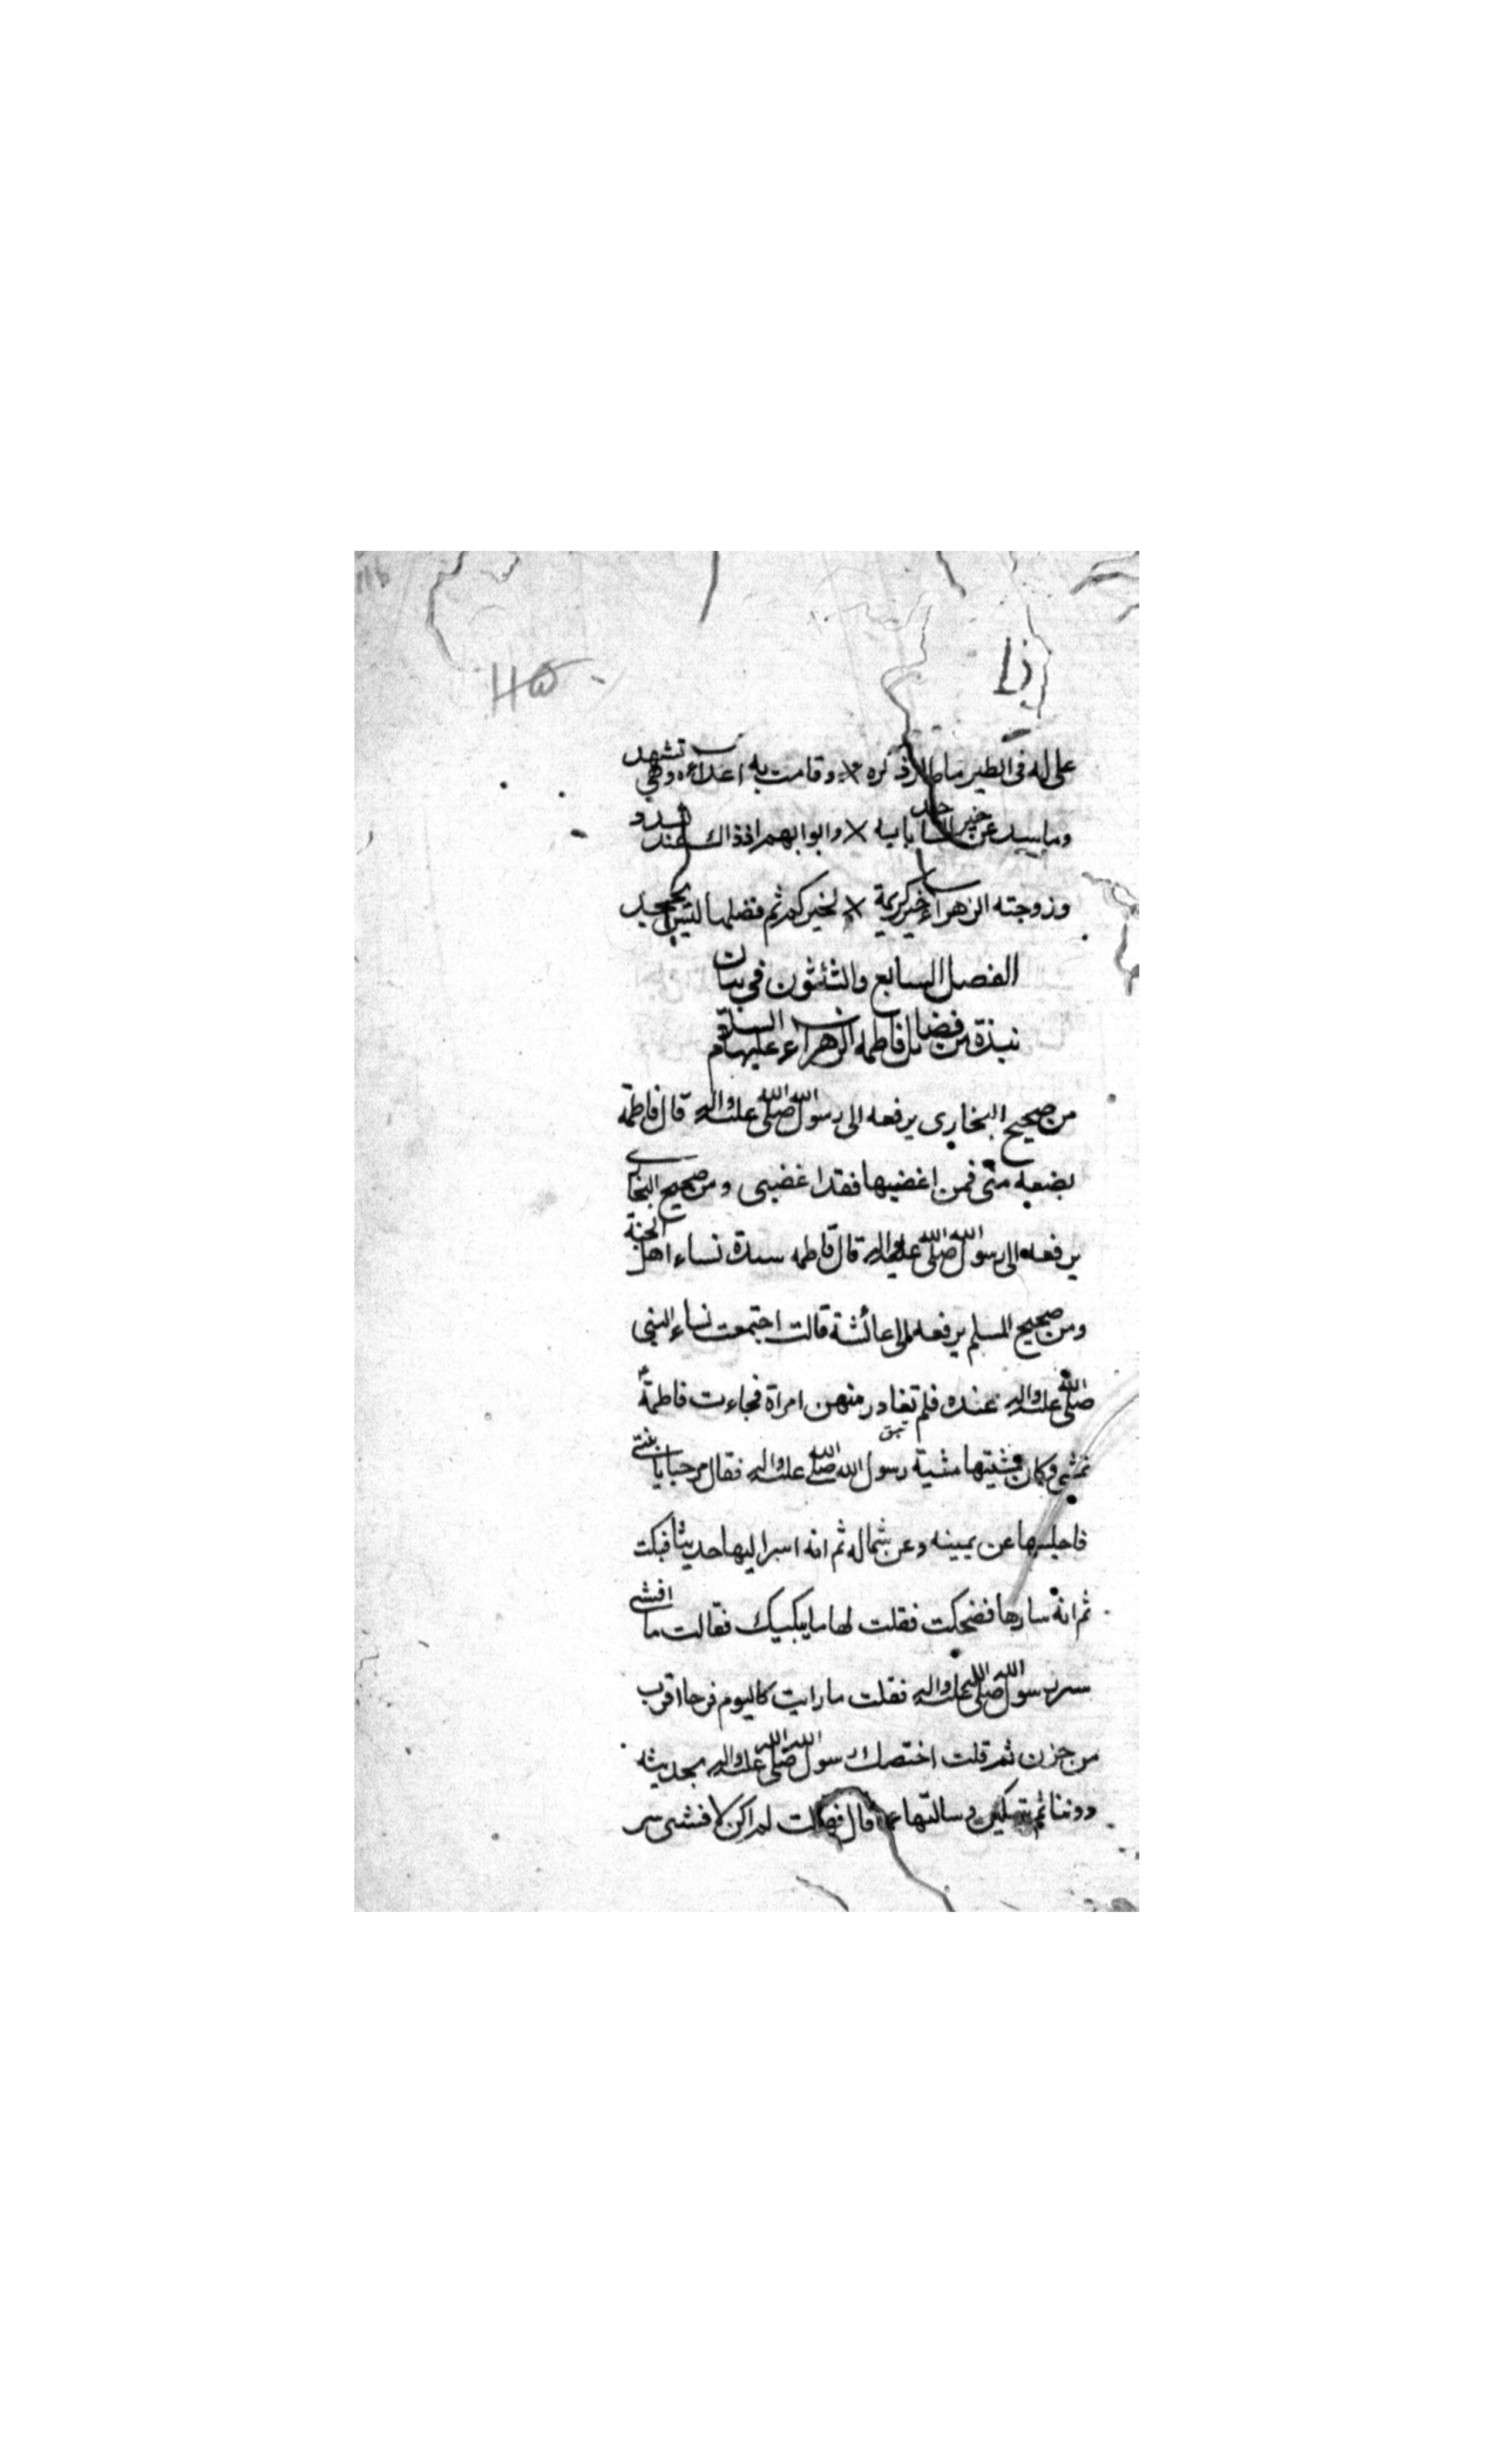 على له فى الطير ما طار ذكره × وقامت به اعداءه وهى تشهد
وما سد عن خير المساجد بابه × وابوابهم اذ ذاك عنه تسدد
وزوجته الزهراء خير كريمة × لخير كريم فضلها ليس يجحد
الفصل السابع والثلثون فى بيان
نبذة من فضايل فاطمه الزهراء عليها السلام
من صحيح البخارى يرفعه الى رسول الله صلى الله عليه واله قال فاطمة
بضعه منى فمن اغضبها فقد اغضبنى ومن صحيح البخارى
يرفعه الى رسول الله صلى الله عليه واله قال فاطمه سيدة نساء اهل الجنة
ومن صحيح المسلم يرفعه الى عائشة قالت اجتمعت نساء النبى
صلى الله عليه واله عنده فلم تغادر منهن امراة فجاءت فاطمة ع
تمشى وكان مشيتها مشية رسول الله صلى الله عليه واله فقال مرحبا يا بنتى
فاجلسها عن يمينه وعن شماله ثم انه اسر اليها حديثا فبكت
ثم انه سارها فضحكت فقلت لها ما يبكيك فقالت ما افشى
سر رسول الله صلى الله عليه واله فقلت ما رايت كاليوم فرحا اقرب
من حزن ثم قلت اختصك رسول الله صلى الله عليه واله بحديثه
دوننا ثم تبكين وسالتها عما قال فقالت لم اكن لافشى سر